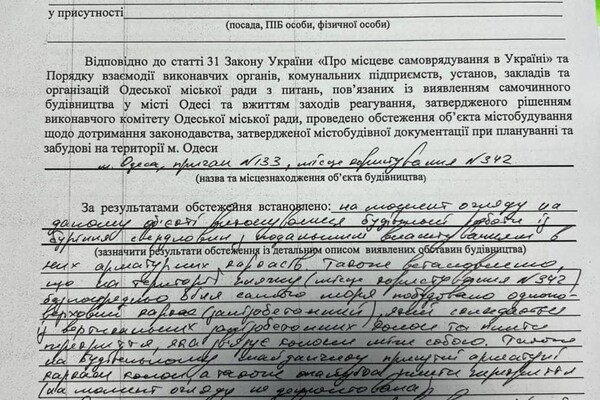 у присутності
(посада, ПІБ особи, фізичної особи)
Відповідно до статті 31 Закону України «Про місцеве самоврядування в Україні» та
Порядку взаємодії виконавчих органів, комунальних підприємств, установ, закладів та
організацій Одеської міської ради з питань, пов'язаних із виявленням самочинного
будівництва у місті Одесі та вжиттям заходів реагування, затвердженого рішенням
виконавчого комітету Одеської міської ради, проведено обстеження об'єкта містобудування
щодо дотримання законодавства, затвердженої містобудівної документації при плануванні та
забудові на території м. Одеси
м. Одеса, причал №133, місце користування №342
(назва та місцезнаходження об'єкта будівництва)
За результатами обстеження встановлено: на момент огляду на
даному об'єкті виконувалися будівельні роботи із
буріння свердловин, подальшим влаштуванням в
(зазначити результати обстеження із детальним описом виявлених обставин будівництва)
них арматурних каркасів. Також встановлено
що на території причалу (місце користування №342)
безпосередньо біля самого моря побудовано одно-
поверховий каркас (залізобетонний), який складається
із вертикальних залізобетонних колон та плити
перекриття, яка в'яжує колони між собою. Також
на будівельному майданчику присутні арматурні
каркаси колон а також опалубка плити перекриття
(на момент огляду не демонтована)